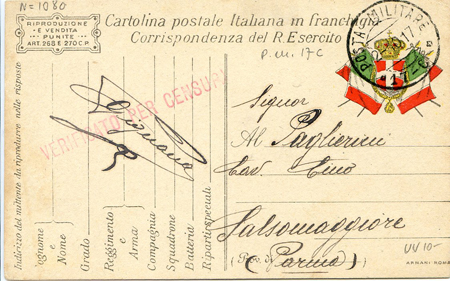 N=1080
RIPRODUZIONE
E VENDITA
PUNITE
ART. 268 E 270 C.P.
Cartolina postale Italiana in franch
Corrispondenza del R. Esercito
P.M. 17C
POSTA MILITARE
17
VERIFICATO PER CENSURA
Signor
Al Paglierini
Cav. Cino
Salsomaggiore
(Prov. di Parma)
Indirizzo del mittente da riprodurre nelle risposte
Cognome e
Nome
Grado
Reggimento
e Arma
Compagnia
Squadrone
Batteria
Riparti speciali
UV 10-